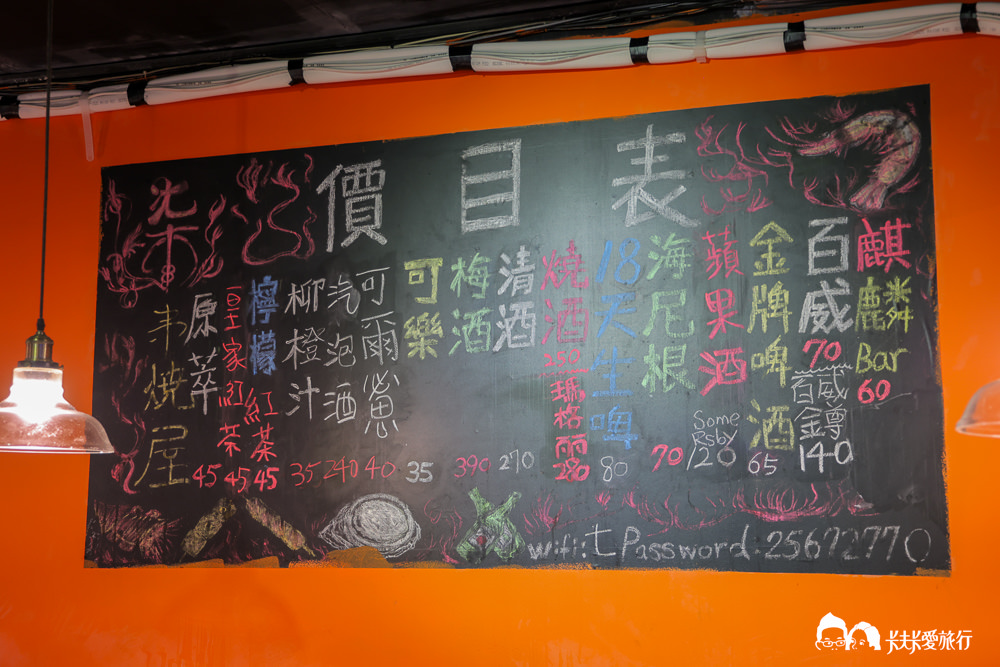 價目表
麒麟
Bar
60
百威
70
百威
140
金牌啤酒
65
蘋果酒
Some
Rsby
120
海尼根
70
18天生啤
80
燒酒
250
瑪格麗
280
清酒
270
梅酒
390
可樂
35
可爾鯊
40
汽泡酒
240
柳橙汁
35
檸檬紅茶
45
家紅茶
45
原萃
45
柴
燒屋
wifi: t Password: 25672770
卡夫卡愛旅行